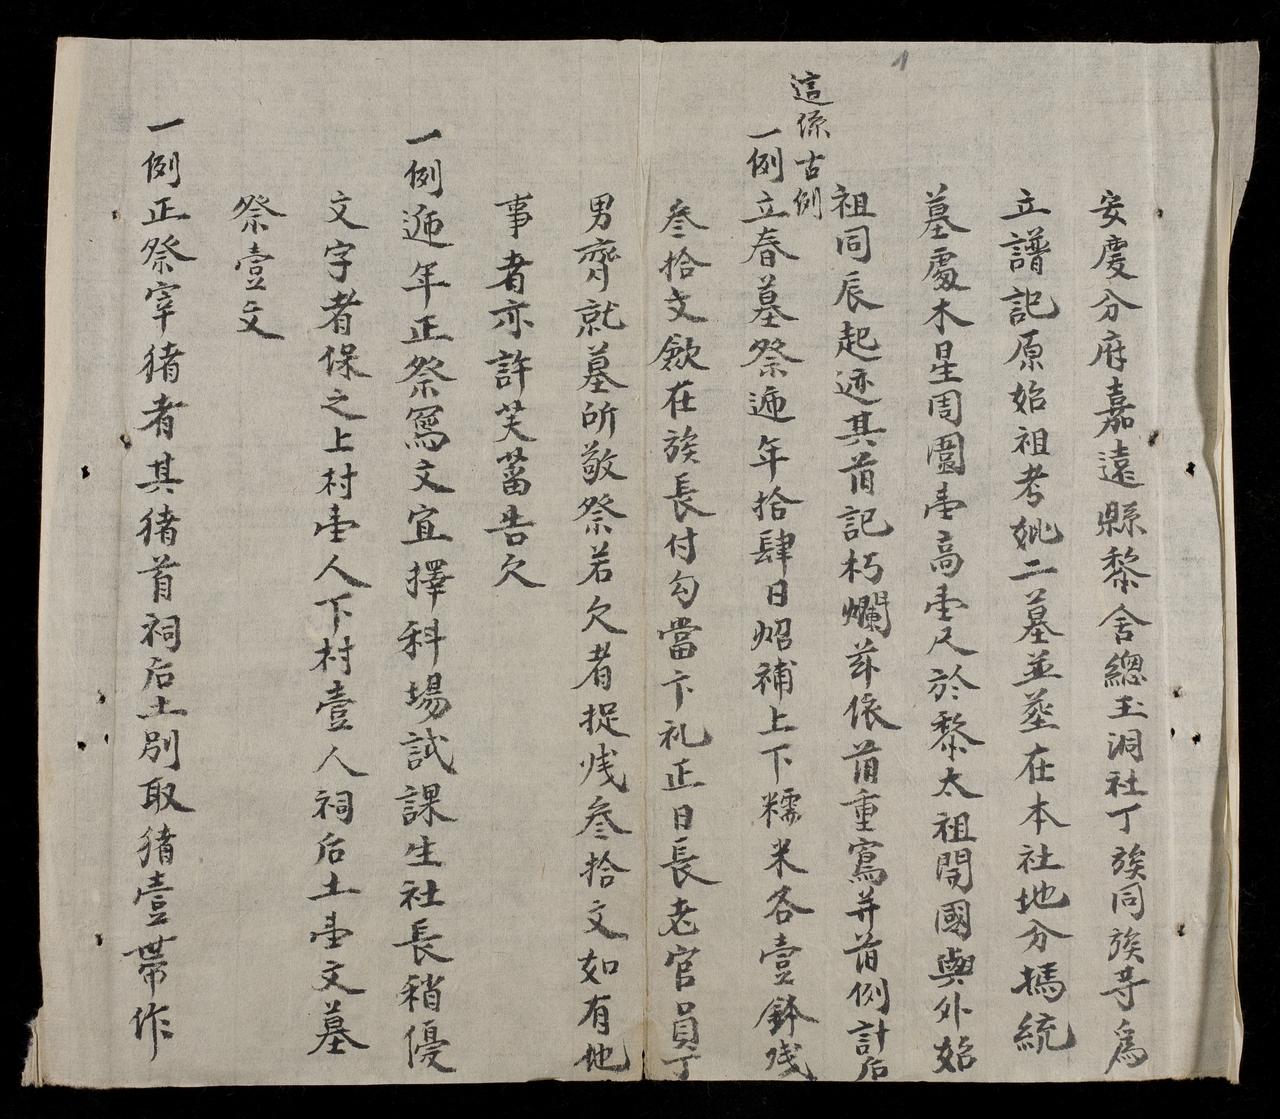 安慶分府嘉遠縣黎舍總玉洞社丁族同族等爲
立譜記原始祖考妣二墓並葬在本社地分撝統
墓處木星周圍壹高壹尺於黎太祖開國與外始
祖同辰起迹其前記朽爛茲依前重寫并前例計后
這係古例
一例立春墓祭遞年拾肆日炤補上下糯米各壹鉢残
叁拾文斂在族長付勾當卞礼正日長老官員丁
男齊就墓所敬祭若欠者捉残叁拾文如有地
事者亦許芙蒥告欠
一例遞年正祭寫文宜擇科場試課生社長稍優
文字者保之上村壹人下村壹人祠后土壹文墓
祭壹文
一例正祭宰猪者其猪首祠后土別取猪壹帶作